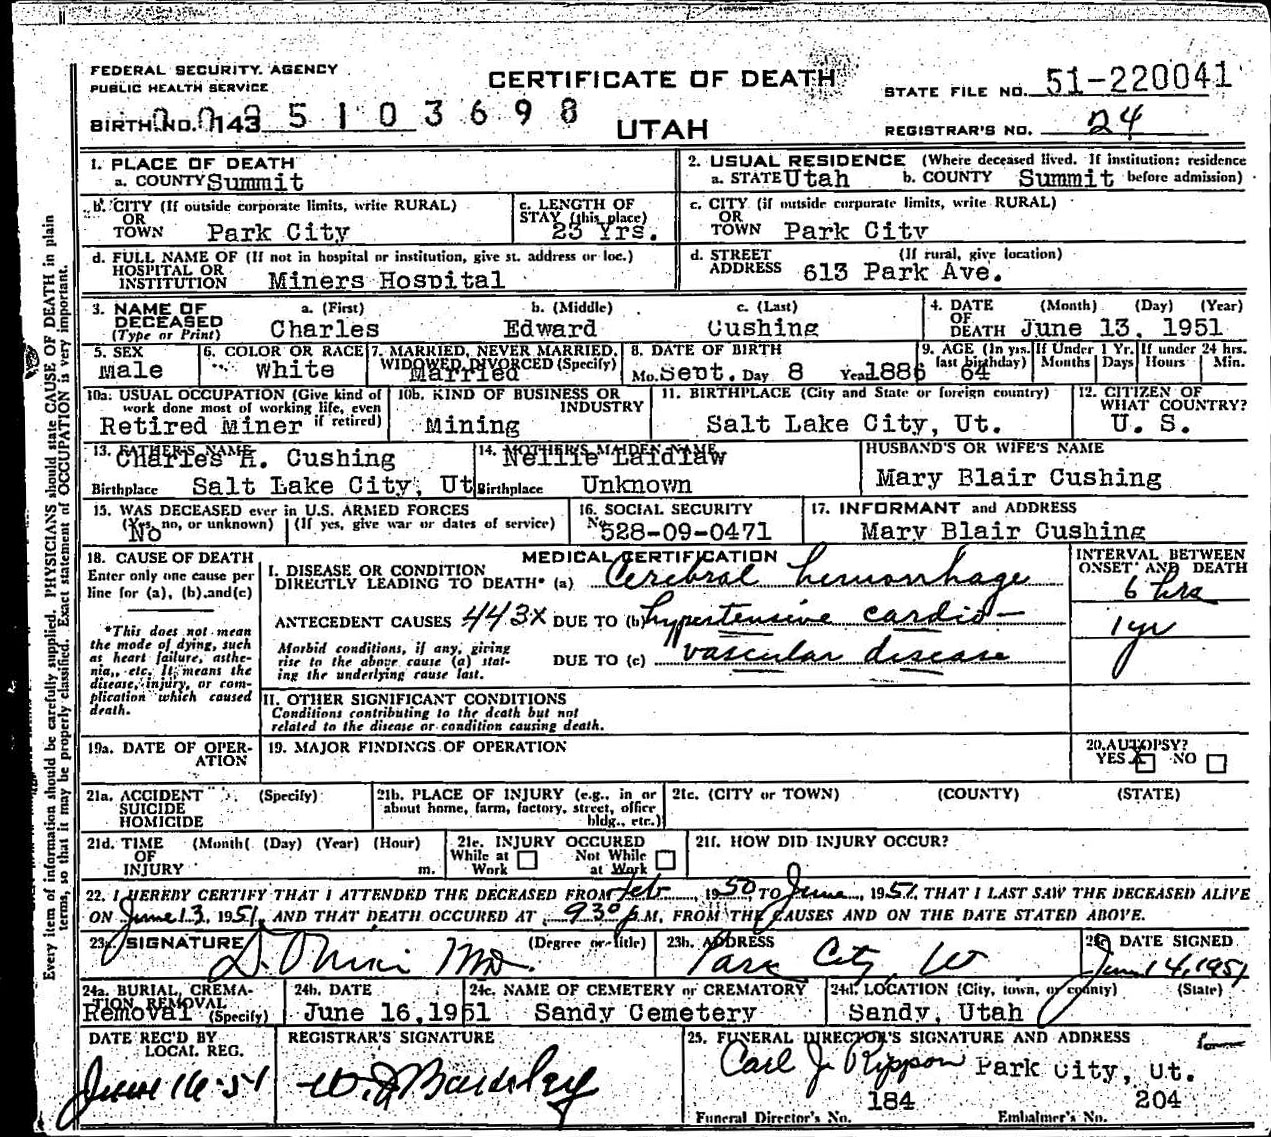 FEDERAL SECURITY AGENCY
PUBLIC HEALTH SERVICE
CERTIFICATE OF DEATH
UTAH
STATE FILE NO. 51-220041
REGISTRAR'S NO. 24
BIRTH NO. 143 5 1 0 3 6 9 8
Every item of information should be carefully supplied. PHYSICIANS should state CAUSE OF DEATH in plain
terms, so that it may be properly classified. Exact statement of OCCUPATION is very important.
1. PLACE OF DEATH
a. COUNTY Summit
2. USUAL RESIDENCE (Where deceased lived. If institution: residence
a. STATE Utah b. COUNTY Summit before admission)
b. CITY (If outside corporate limits, write RURAL)
OR
TOWN Park City
c. LENGTH OF
STAY (this place)
23 Yrs.
c. CITY (if outside corporate limits, write RURAL)
OR
TOWN Park City
d. FULL NAME OF (If not in hospital or institution, give st. address or loc.)
HOSPITAL OR
INSTITUTION Miners Hospital
d. STREET (If rural, give location)
ADDRESS 613 Park Ave.
3. NAME OF a. (First) b. (Middle) c. (Last)
DECEASED Charles Edward Cushing
(Type or Print)
4. DATE (Month) (Day) (Year)
OF
DEATH June 13, 1951
5. SEX
Male
6. COLOR OR RACE
White
7. MARRIED, NEVER MARRIED,
WIDOWED, DIVORCED (Specify)
Married
8. DATE OF BIRTH
Mo. Sept. Day 8 Year 1886
9. AGE (In yrs. last birthday) 64
If Under 1 Yr. Months Days
If under 24 hrs. Hours Min.
10a. USUAL OCCUPATION (Give kind of
work done most of working life, even
Retired Miner if retired)
10b. KIND OF BUSINESS OR
INDUSTRY
Mining
11. BIRTHPLACE (City and State or foreign country)
Salt Lake City, Ut.
12. CITIZEN OF
WHAT COUNTRY?
U. S.
13. FATHER'S NAME
Charles H. Cushing
Birthplace Salt Lake City, Ut
14. MOTHER'S MAIDEN NAME
Nellie Laidlaw
Birthplace Unknown
HUSBAND'S OR WIFE'S NAME
Mary Blair Cushing
15. WAS DECEASED ever in U.S. ARMED FORCES
(Yes, no, or unknown) (If yes, give war or dates of service)
No
16. SOCIAL SECURITY
No. 528-09-0471
17. INFORMANT and ADDRESS
Mary Blair Cushing
18. CAUSE OF DEATH
Enter only one cause per
line for (a), (b), and (c)
*This does not mean
the mode of dying, such
as heart failure, asthe-
nia, etc. It means the
disease, injury, or com-
plication which caused
death.
MEDICAL CERTIFICATION
I. DISEASE OR CONDITION
DIRECTLY LEADING TO DEATH* (a) Cerebral hemorrhage
ANTECEDENT CAUSES 443X DUE TO (b) hypertensive cardio-
Morbid conditions, if any, giving
rise to the above cause (a) stat-
ing the underlying cause last.
DUE TO (c) vascular disease
INTERVAL BETWEEN
ONSET AND DEATH
6 hrs
1 yr
II. OTHER SIGNIFICANT CONDITIONS
Conditions contributing to the death but not
related to the disease or condition causing death.
19a. DATE OF OPER-
ATION
19. MAJOR FINDINGS OF OPERATION
20. AUTOPSY?
YES X NO
21a. ACCIDENT (Specify)
SUICIDE
HOMICIDE
21b. PLACE OF INJURY (e.g., in or
about home, farm, factory, street, office
bldg., etc.)
21c. (CITY or TOWN) (COUNTY) (STATE)
21d. TIME (Month( (Day) (Year) (Hour)
OF
INJURY m.
21e. INJURY OCCURED
While at Work Not While at Work
21f. HOW DID INJURY OCCUR?
22. I HEREBY CERTIFY THAT I ATTENDED THE DECEASED FROM Feb, 1950, TO June, 1951, THAT I LAST SAW THE DECEASED ALIVE
ON June 13, 1951, AND THAT DEATH OCCURED AT 930 P.M, FROM THE CAUSES AND ON THE DATE STATED ABOVE.
23a. SIGNATURE (Degree or Title)
MD.
23b. ADDRESS
Park City, Ut
23c. DATE SIGNED
June 14, 1951
24a. BURIAL, CREMA-
TION, REMOVAL
Removal (Specify)
24b. DATE
June 16, 1951
24c. NAME OF CEMETERY or CREMATORY
Sandy Cemetery
24d. LOCATION (City, town, or county) (State)
Sandy, Utah
DATE REC'D BY
LOCAL REG.
June 16-51
REGISTRAR'S SIGNATURE
25. FUNERAL DIRECTOR'S SIGNATURE AND ADDRESS
Carl J. Rippon Park City, Ut.
184 204
Funeral Director's No. Embalmer's No.